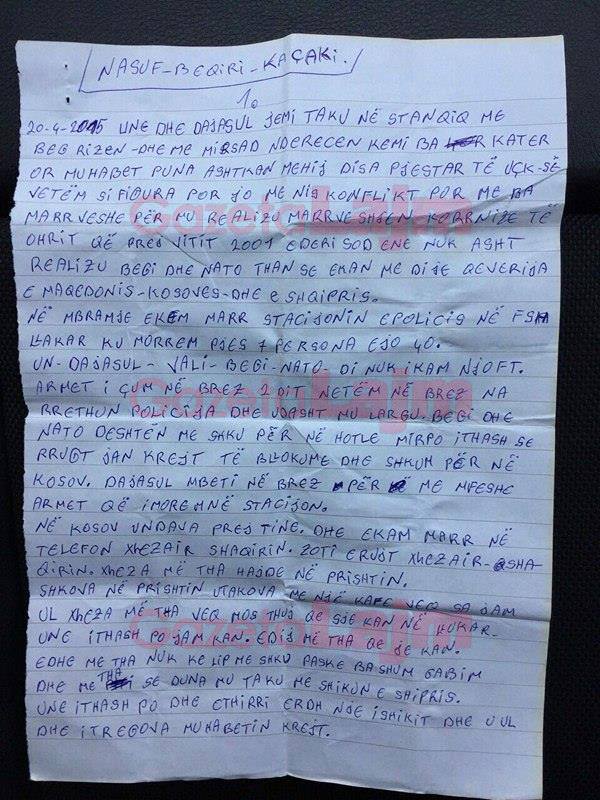 NASUF-BEQIRI-KAÇAKI.
1.
20-4-2015 UNE DHE DAJASUL JEMI TAKU NË STANQIQ ME
BEG RIZEN-DHE ME MIRSAD NDERECEN KEMI BA KATER
OR MUHABET PUNA ASHTKAN MEHIJ DISA PJESTAR TË UÇK-SË
VETËM SI FIGURA POR JO ME NIS KONFLIKT POR ME BA
MARRVESHE PËR MU REALIZU MARRVESHJEN KORRNIZE TË
OHRIT QË PREJ VITIT 2001 EDERI SOD ENE NUK ASHT
REALIZU BEGI DHE NATO THAN SE EKAN ME DIJE QEVERIJA
E MAQEDONIS-KOSOVES-DHE E SHQIPRIS.
NË MBRAMJE EKEM MARR STACIJONIN EPOLICIS NË FSH
LLAKAR KU MORREM PJES 7 PERSONA EJO 40.
UN-DAJASUL-VALI-BEGI-NATO-DI NUK IKAM NJOFT.
ARMET I ÇUM NË BREZ 2 DIT NETËM NË BREZ NA
RRETHUN POLICIJA DHE UDASHT MU LARGU. BEGI DHE
NATO DESHTËN ME SHKU PËR NË HOTLE MIRPO ITHASH SE
RRUGT JAN KREJT TË BLLOKUME DHE SHKUM PËR NË
KOSOV. DAJASUL MBETI NË BREZ PËR ME MPESHE
ARMET QË IMOREM NË STACIJON.
NË KOSOV UNDAVA PREJ TINE. DHE EKAM MARR NË
TELEFON XHEZAIR SHAQIRIN. ZOTI ERUJT XHEZAIR-SHA-
QIRIN. XHEZA MË THA HAJDE NË PRISHTIN.
SHKOVA NË PRISHTIN UTAKOVA ME NJË KAFE VEQ SA JAM
UL XHEZA MË THA VEQ MOS THUJ QE SJE KAN NË LLUKAR-
UNE ITHASH PO JAM KAN. EDIJ MË THA QE JE KAN.
EDHE ME THA NUK KE LIP ME SHKU PASKE BA SHUM GABIM
DHE ME THA SE DUNA MU TAKU ME SHIKUN E SHIPRIS.
UNE ITHASH PO DHE ETHIRRI ERDH NJE ISHIKIT DHE U UL
DHE ITREGOVA MUHABETIN KREJT.
Gazeta Lajm
Gazeta Lajm
Gazeta Lajm